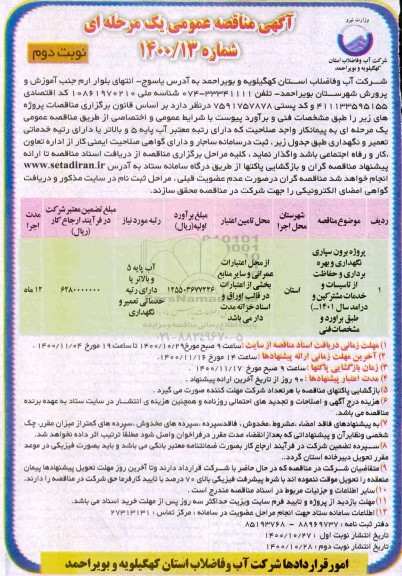 وزارت نیرو
شرکت آب وفاضلاب استان
کهگیلویه و بویراحمد
آگهی مناقصه عمومی یک مرحله ای
شماره ۱۴۰۰/۱۳
نوبت دوم
شرکت آب وفاضلاب استان کهگیلویه و بویراحمد به آدرس یاسوج- انتهای بلوار ارم جنب آموزش و
پرورش شهرستان بویراحمد- تلفن ۳۳۳۴۱۱۱۱-۰۷۴ شناسه ملی ۱۰۸۶۱۹۷۰۲۱۰ کد اقتصادی
۴۱۱۱۳۳۵۹۵۱۵۵ و کد پستی ۷۵۹۱۷۵۷۸۷۸ درنظر دارد بر اساس قانون برگزاری مناقصات پروژه
های زیر را طبق مشخصات فنی و برآورد پیوست با شرایط عمومی و اختصاصی از طریق مناقصه عمومی
یک مرحله ای به پیمانکار واجد صلاحیت که دارای رتبه معتبر آب پایه ۵ و بالاتر یا دارای رتبه خدماتی
تعمیر و نگهداری طبق جدول زیر، ثبت درسامانه ساجار و دارای گواهی صلاحیت ایمنی کار از اداره تعاون
،کار و رفاه اجتماعی باشد واگذار نماید، کلیه مراحل برگزاری مناقصه از دریافت اسناد مناقصه تا ارائه
پیشنهاد مناقصه گران و بازگشایی پاکتها از طریق درگاه سامانه ستاد به آدرس www.setadiran.ir
انجام خواهد شد مناقصه گران درصورت عدم عضویت قبلی، مراحل ثبت نام در سایت مذکور و دریافت
گواهی امضای الکترونیکی را جهت شرکت در مناقصه محقق سازند.
ردیف
موضوع مناقصه
شهرستان محل اجرا
محل تامین اعتبار
مبلغ برآورد اولیه(ریال)
رتبه مورد نیاز
مبلغ تضمین معتبر شرکت در فرآیند ارجاع کار (ریال)
مدت اجرا
۱
پروژه برون سپاری
نگهداری و بهره
برداری و حفاظت
از تاسیسات و
خدمات مشترکین و
درآمد سال ۱۴۰۱(...
طبق برآورد و
مشخصات فنی
استان
از محل اعتبارات
عمرانی و سایر منابع
بخشی از اعتبارات
در قالب اوراق و
اسناد خزانه مدت
دار می باشد
۱۲۵۵۰۳۶۷۷۲۲۶
آب پایه ۵
و بالاتر یا
دارای رتبه
خدماتی تعمیر و
نگهداری
۶۲۸۰۰۰۰۰۰۰
۱۲ ماه
۱) مهلت زمانی دریافت اسناد مناقصه از سایت :ساعت ۹ صبح مورخ ۱۴۰۰/۱۰/۲۹ تا ساعت ۱۹ مورخ ۱۴۰۰/۱۱/۰۴.
۲) آخرین مهلت زمانی ارائه پیشنهادها :ساعت ۱۴ مورخ ۱۴۰۰/۱۱/۱۶.
۳) زمان بازگشایی پاکتها :ساعت ۹ صبح مورخ ۱۴۰۰/۱۱/۱۷ .
۴) مدت اعتبار پیشنهادها : ۹۰ روز از تاریخ آخرین ارائه پیشنهاد.
۵) بازگشایی پاکتهای مناقصه با هرتعداد شرکت مهلت کننده صورت می گیرد.
۶) هزینه درج آگهی و اصلاحات و تجدید های احتمالی روزنامه و همچنین هزینه ی انتشار در سایت ستاد به عهده برنده
مناقصه می باشد.
۷) به پیشنهادهای فاقد امضاء ،مشروط ،مخدوش ، فاقدسپرده ،سپرده های مخدوش ،سپرده های کمتراز میزان مقرر، چک
شخصی ونظایرآن و پیشنهاداتی که بعداز انقضاء مدت مقرر درفراخوان واصل شود مطلقا ترتیب اثر داده نخواهد شد.
۸) سپرده تضمین شرکت در فرآیند ارجاع کار بصورت ضمانتنامه معتبر بانکی می باشد و باید بصورت فیزیکی در موعد
مقرر تحویل دبیرخانه استان گردد..
۹) متقاضیان شرکت در مناقصه که در حال حاضر با شرکت قرارداد دارند وتا آخرین روز مهلت تحویل پیشنهادها پیمان
منعقده را تحویل موقت ننموده اند با شرط پیشرفت فیزیکی بالای ۷۰ درصد با تایید کارفرما حق شرکت در مناقصه را دارند.
۱۰) سایر اطلاعات و جزئیات مربوط در اسناد مناقصه مندرج است .
۱۱) مهلت بازدید از پروژه و تایید فرم سایت ویزیت حداکثر سه روز پس از مهلت خرید اسناد می باشد.
۱۲) اطلاعات سامانه ستاد جهت انجام مراحل عضویت در سامانه : مرکز تماس : ۲۷۳۱۳۱۳۱
دفتر ثبت نامه : ۸۸۹۶۹۷۳۷ – ۸۵۱۹۳۷۶۸
تاریخ انتشار نوبت اول : ۱۴۰۰/۱۰/۲۷
تاریخ انتشار نوبت دوم : ۱۴۰۰/۱۰/۲۸
امور قراردادها شرکت آب و فاضلاب استان کهگیلویه و بویراحمد